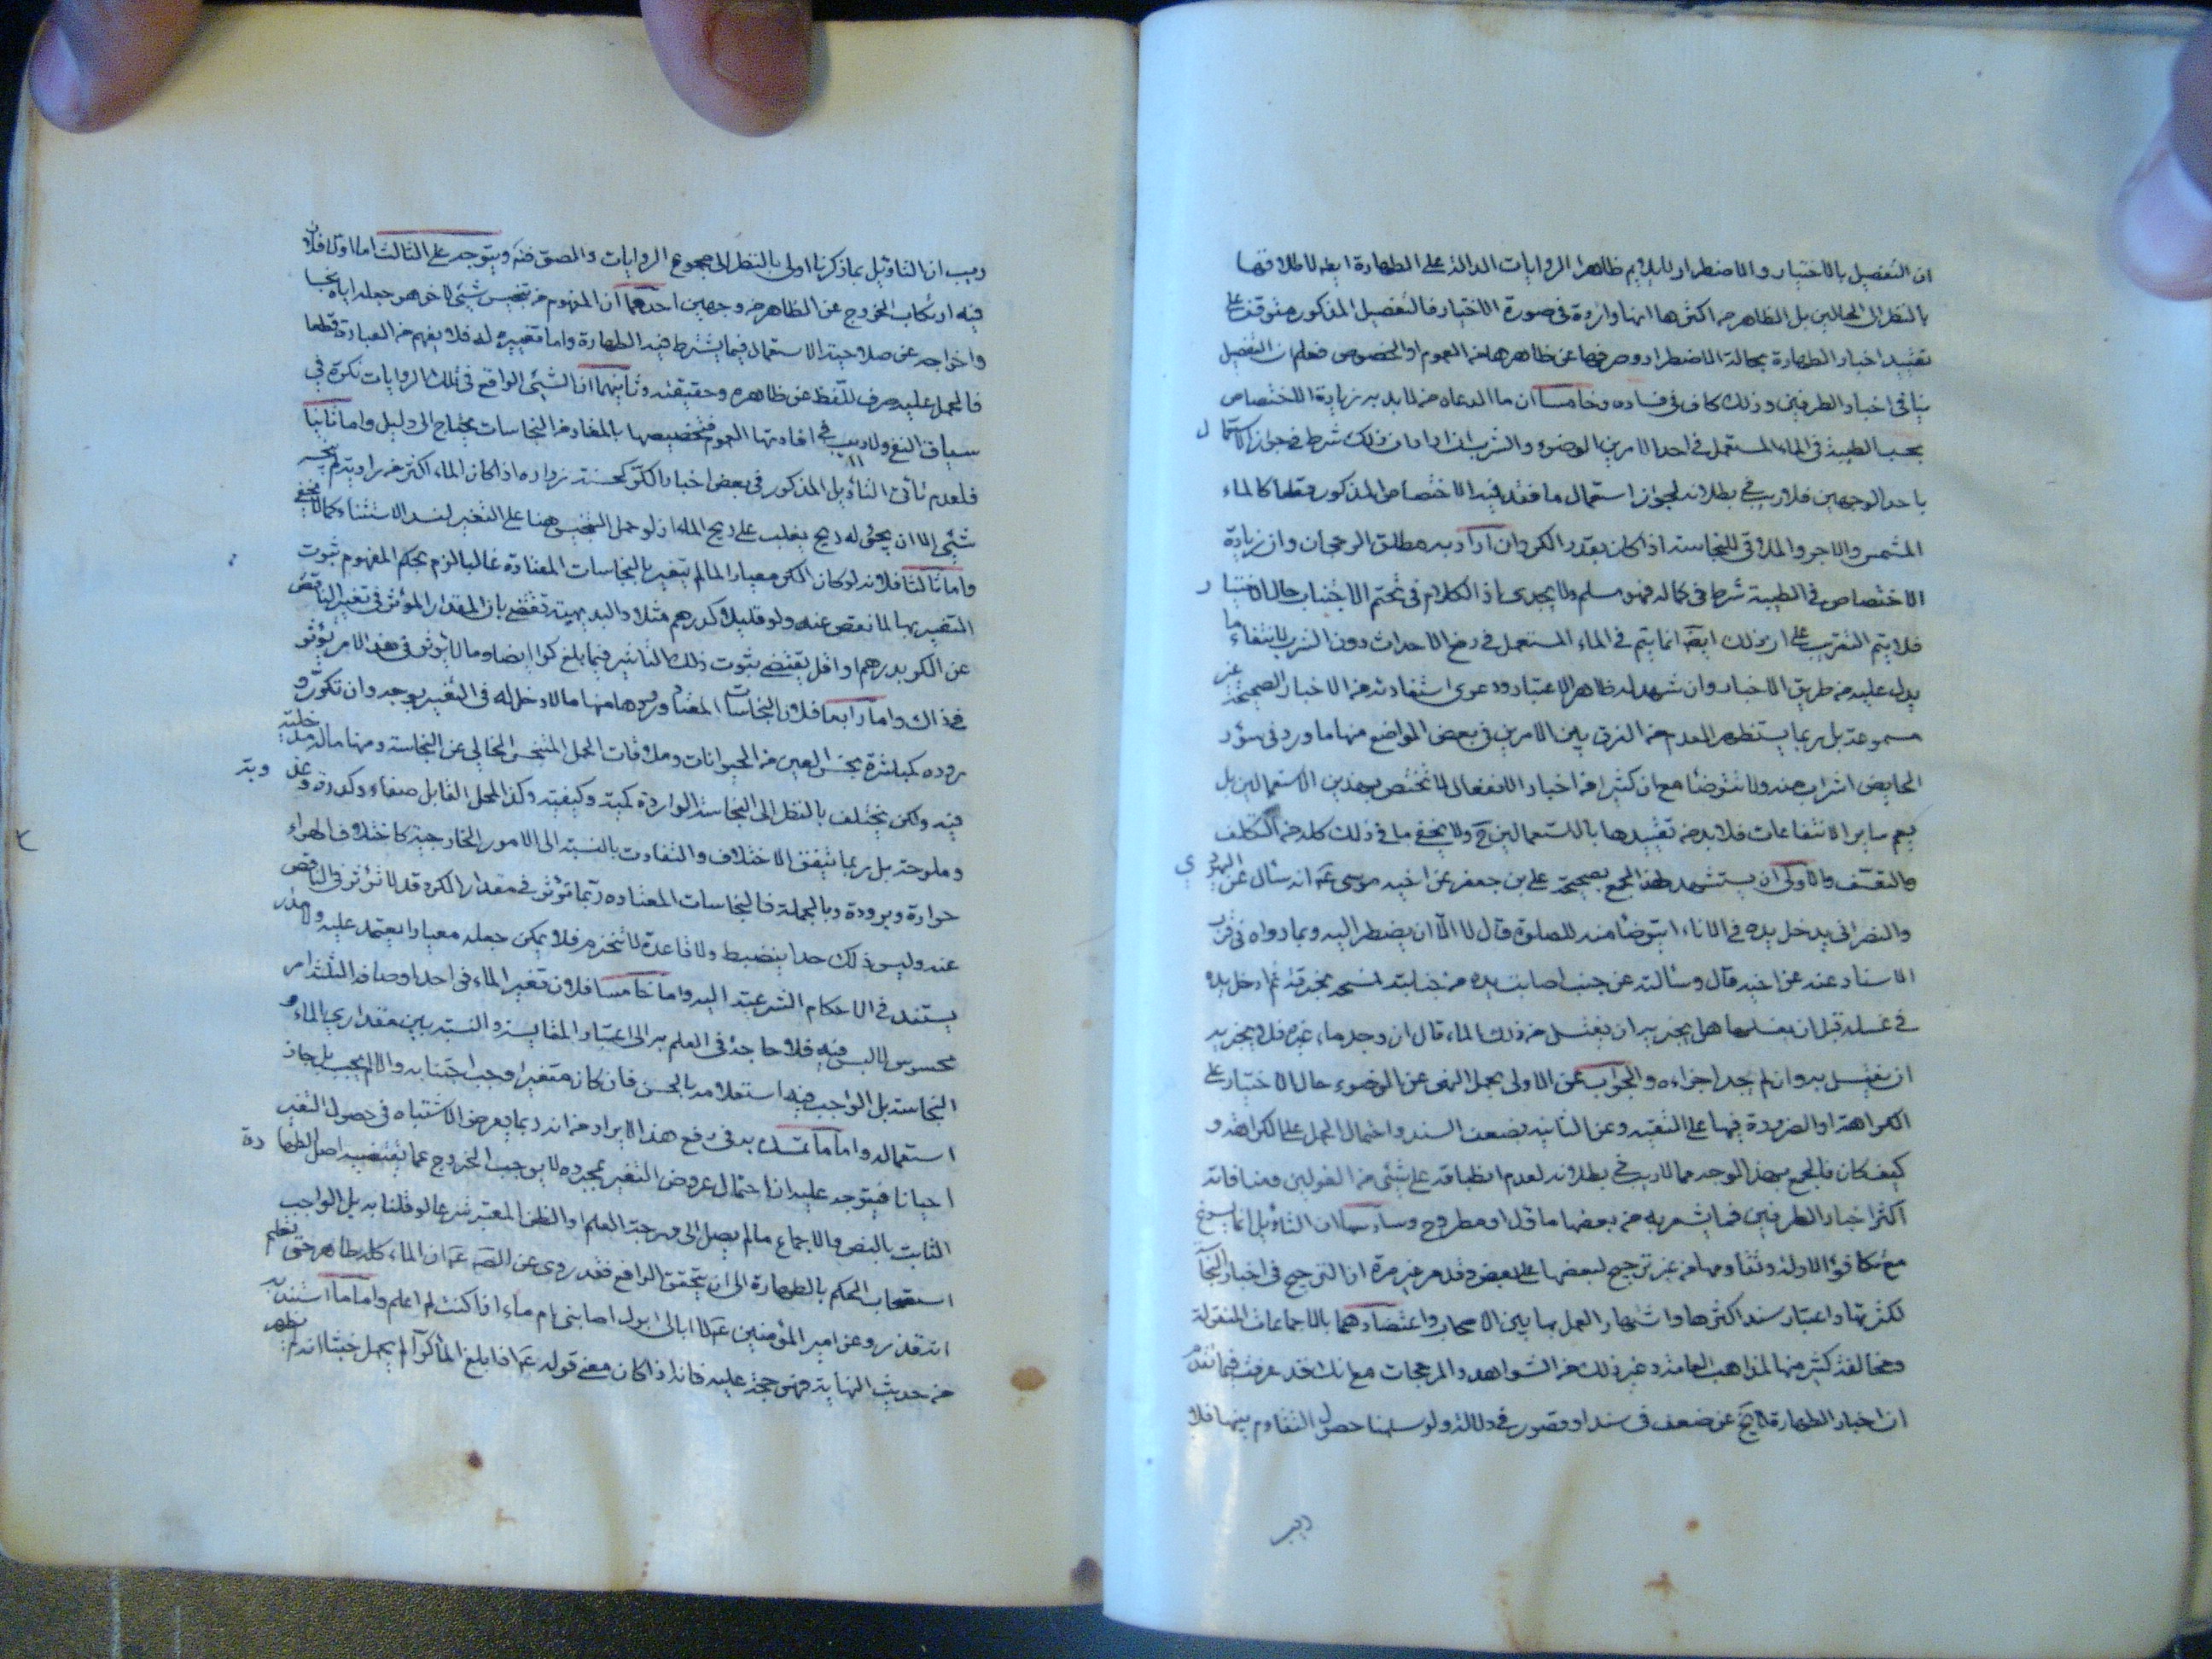 ان التفصيل بالاختيار والاضطرار لا يلايم ظاهر الروايات الدالة على الطهارة ايضا لاطلاقها
بالنظر الى الحالين بل الظاهر من اكثرها انها واردة في صورة الاختيار فالتفصيل المذكور متوقف على
تقييد اخبار الطهارة بحالة الاضطرار وصرفها عن ظاهرها من العموم او الخصوص فعلم ان التفصيل
ينافي اخبار الطرفين وذلك كاف في فساده وخامسا ان ما ادعاه من لا بدية زيادة الاختصاص
بحسب الطيبة في الماء المستعمل في احد الامرين الوضوء والشرب ان اراد ان ذلك شرط في جواز الاستعمال
باحد الوجهين فلا ريب في بطلانه لجواز استعمال ما فقد فيه الاختصاص المذكور قطعا كالماء
المشمس والآجن والملاقي للنجاسة اذا كان بقدر الكر وان اراد به مطلق الرجحان وان زيادة
الاختصاص في الطيبة شرط في كماله فهو مسلم ولا يجدي اذ الكلام في تحتم الاجتناب حال الاختيار
فلا يتم التقريب على ان ذلك ايضا انما يتم في الماء المستعمل في رفع الاحداث دون الشرب لانتفاء ما
يدل عليه من طريق الاخبار وان شهد له ظاهر الاعتبار ودعوى استفادته من الاخبار الصحيحة غير
مسموعة بل ربما يستظهر العدم من الفرق بين الامرين في بعض المواضع منها ما ورد في سؤر
الحايض اشرب منه ولا تتوضأ مع ان كثيرا من اخبار الانفعال لا تختص بهذين الاستعمالين بل
يعم ساير الانتفاعات فلا بد من تقييدها بالاستعمالين ح ولا يخفى ما في ذلك كله من التكلف
والتعسف والاولى ان يستشهد لهذا الجمع بصحيحة علي بن جعفر عن اخيه موسى ع انه سأل عن اليهودي
والنصراني يدخل يده في الاناء ايتوضأ منه للصلوة قال لا الا ان يضطر اليه وبما رواه في قرب
الاسناد عنه عن اخيه قال وسألته عن جنب اصابت يده من جنابته فمسحه بخرقة ثم ادخل يده
في غسله قبل ان يغسلها هل يجزيه ان يغتسل من ذلك الماء قال ان وجد ماء غيره فلا يجزيه
ان يغتسل به وان لم يجد اجزاءه والجواب عن الاولى بحمل النهي عن الوضوء حال الاختيار على
الكراهة او الضرورة فيها على التقية وعن الثانية بضعف السند واحتمال الحمل على الكراهة و
كيف كان فالجمع بهذا الوجه مما لا ريب في بطلانه لعدم انطباقه على شيء من القولين ومنافاته
اكثر اخبار الطرفين فما يشعر به من بعضها ماول او مطروح وسادسا ان التأويل انما يسوغ
مع تكافؤ الادلة وتقاومها من غير ترجيح لبعضها على بعض وقد مر غير مرة ان الترجيح في اخبار النجاسة
لكثرتها واعتبار سند اكثرها واشتهار العمل بها بين الاصحاب واعتضادهما بالاجماعات المنقولة
ومخالفة كثير منها لمذاهب العامة وغير ذلك من الشواهد والمرجحات مع انك قد عرفت فيما تقدم
ان اخبار الطهارة لا تخ عن ضعف في سند او قصور في دلالة ولو سلمنا حصول التقاوم بينها فلا
ريب
ريب ان التاويل بما ذكرنا اولى بالنظر الى مجموع الروايات والصق منه ويتوجه على الثالث اما اولا فلان
فيه ارتكاب الخروج عن الظاهر من وجهين احدهما ان المفهوم من تنجيس شيء لاخر هو جعله اياه نجسا
واخراجه عن صلاحية الاستعمال فيما يشترط فيه الطهارة واما تغييره له فلا يفهم من العبارة قطعا
فالحمل عليه صرف للفظ عن ظاهره وحقيقته وثانيهما ان الشيء الواقع في تلك الروايات نكرة في
سياق النفي ولا ريب في افادتها العموم فتخصيصها بالمعتاد من النجاسات يحتاج الى دليل واما ثانيا
فلعدم تاتى التأويل المذكور في بعض اخبار الكر كحسنة زراره اذا كان الماء اكثر من راوية لم ينجسه
شيء الا ان يجئ له ريح يغلب على ريح الماء اذ لو حمل التنجيس هنا على التغير لفسد الاستثناء كما لا يخفى
واما ثالثا فلانه لو كان الكر معيارا لما لم يتغير بالنجاسات المعتادة غالبا لزم بحكم المفهوم ثبوت
التغير بها لما نقص عنه ولو قليلا كدرهم مثلا والبديهية تقضي بان المقدار المؤثر في تغير الناقص
عن الكر بدرهم او اقل يقتضي ثبوت ذلك التاثير فيما بلغ كرا ايضا وما لا يؤثر في هذا لا يؤثر
في ذاك واما رابعا فلان النجاسات المعتاد ورودها منها ما لا دخل له في التغير بوجه وان تكرر و
روده كمباشرة نجس العين من الحيوانات وملاقات المحل المتنجس الخالي عن النجاسة ومنها ما له مدخلية
فيه ولكن يختلف بالنظر الى النجاسة الواردة كمية وكيفية وكذا المحل القابل صفاء وكدرة وعذوبة
وملوحة بل ربما يتفق الاختلاف والتفاوت بالنسبة الى الامور الخارجية كاختلاف الهواء
حرارة وبرودة وبالجملة فالنجاسات المعتاده ربما تؤثر في مقدار الكر وقد لا تؤثر في الناقص
عنه وليس لذلك حد ينضبط ولا قاعدة لا تنخرم فلا يمكن جعله معيارا يعتمد عليه ومدار
يستند في الاحكام الشرعية اليه واما خامسا فلان تغير الماء في احد اوصافه الثلثة امر
محسوس لا لبس فيه فلا حاجة في العلم به الى اعتبار المقايسة والنسبة بين مقداري الماء و
النجاسة بل الواجب فيه استعلامه بالحس فان كان متغيرا وجب اجتنابه والا لم يجب بل جاز
استعماله واما ما تمسك به في رفع هذا الايراد من انه ربما يعرض الاشتباه في حصول التغير
احيانا فيتوجه عليه ان احتمال عروض التغير بمجرده لا يوجب الخروج عما يقتضيه اصل الطهارة
الثابت بالنص والاجماع ما لم يصل الى درجة العلم او الظن المعتبر شرعا لو قلنا به بل الواجب
استصحاب الحكم بالطهارة الى ان يتحقق الرافع فقد روي عن الصه ع ان الماء كله طاهر حتى تعلم
انه قذر وعن امير المؤمنين ع لا ابالي ابول اصابني ام ماء اذا كنت لم اعلم واما ما استند به
من حديث النهاية فهو حجة عليه فانه اذا كان معنى قوله ع اذا بلغ الماء كرا لم يحمل خبثا انه لم يظهر